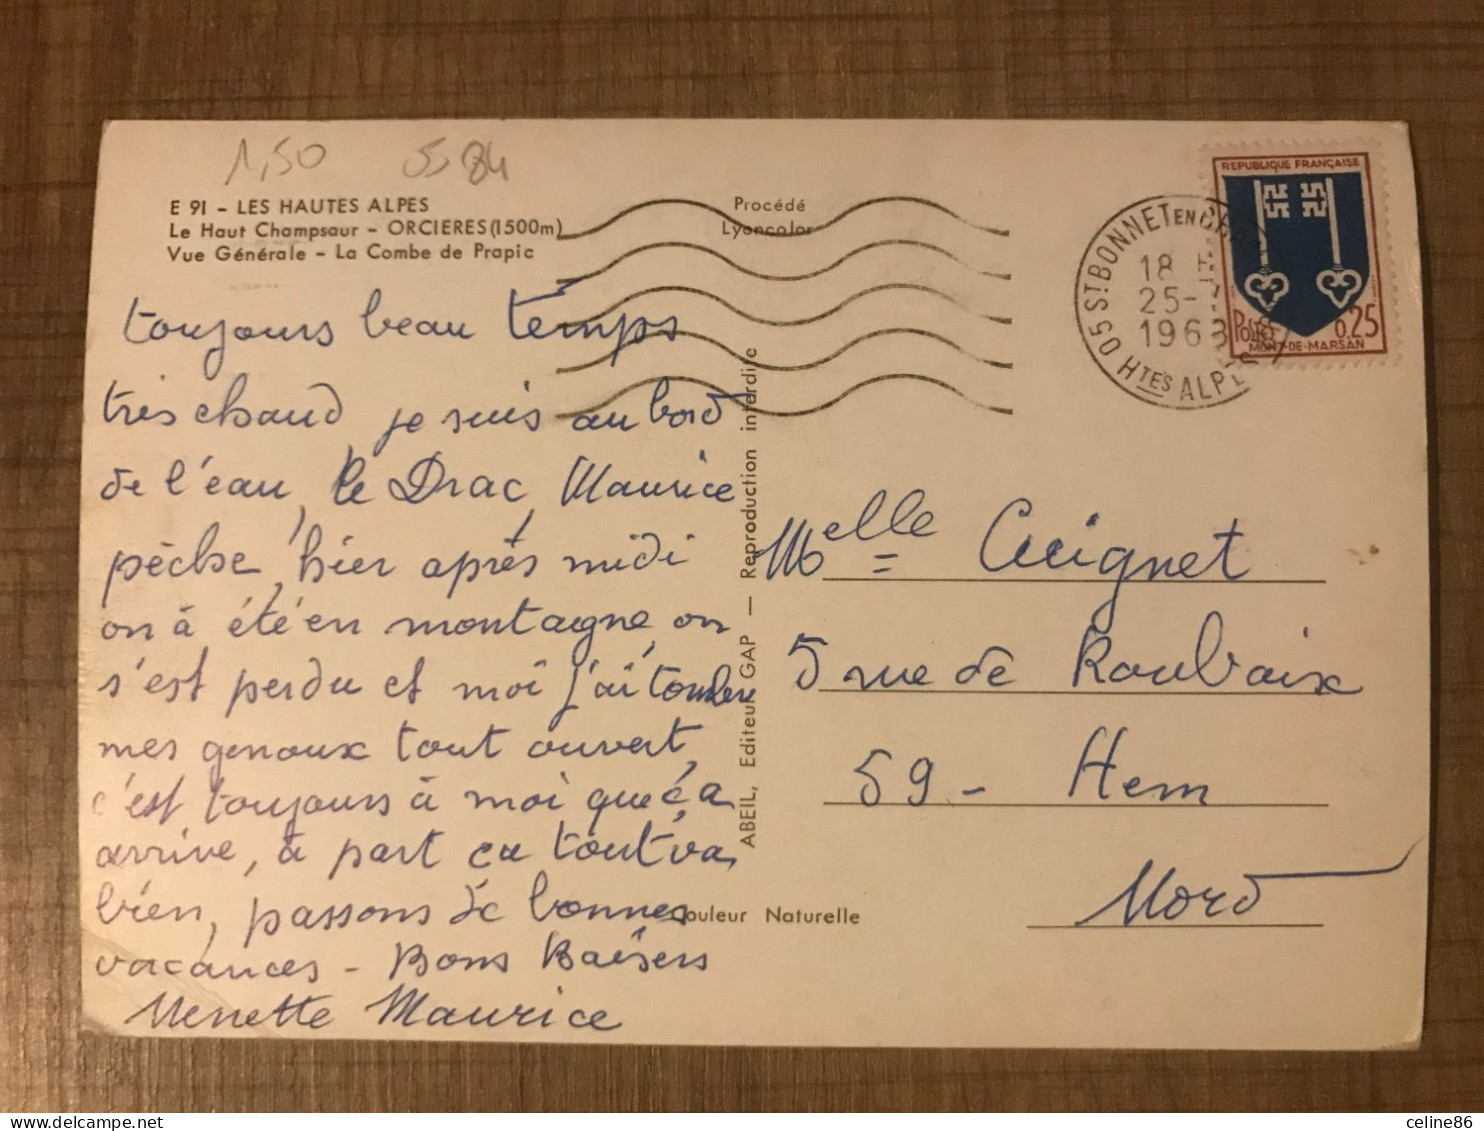 1,50 0584
E 91 - LES HAUTES ALPES
Le Haut Champsaur - ORCIERES (1500m)
Vue Générale - La Combe de Prapic
Procédé
Lyoncolor
toujours beau temps
très chaud je suis au bord
de l'eau, le Drac, Maurice
pèche, hier après midi
on à été en montagne, on
s'est perdu et moi j'ai tomber
mes genoux tout ouvert,
c'est toujours à moi que ça
arrive, à part ça tout va
bien, passons de bonnes
vacances - Bons Baisers
Nenette Maurice
ABEIL, Editeur GAP — Reproduction interdite
Couleur Naturelle
REPUBLIQUE FRANÇAISE
POSTES 0,25
MONT-DE-MARSAN
05 ST BONNET EN
HTES ALPES
18 H
25-
196
Melle Cuignet
5 rue de Roubaix
59 - Hem
Nord
celine86